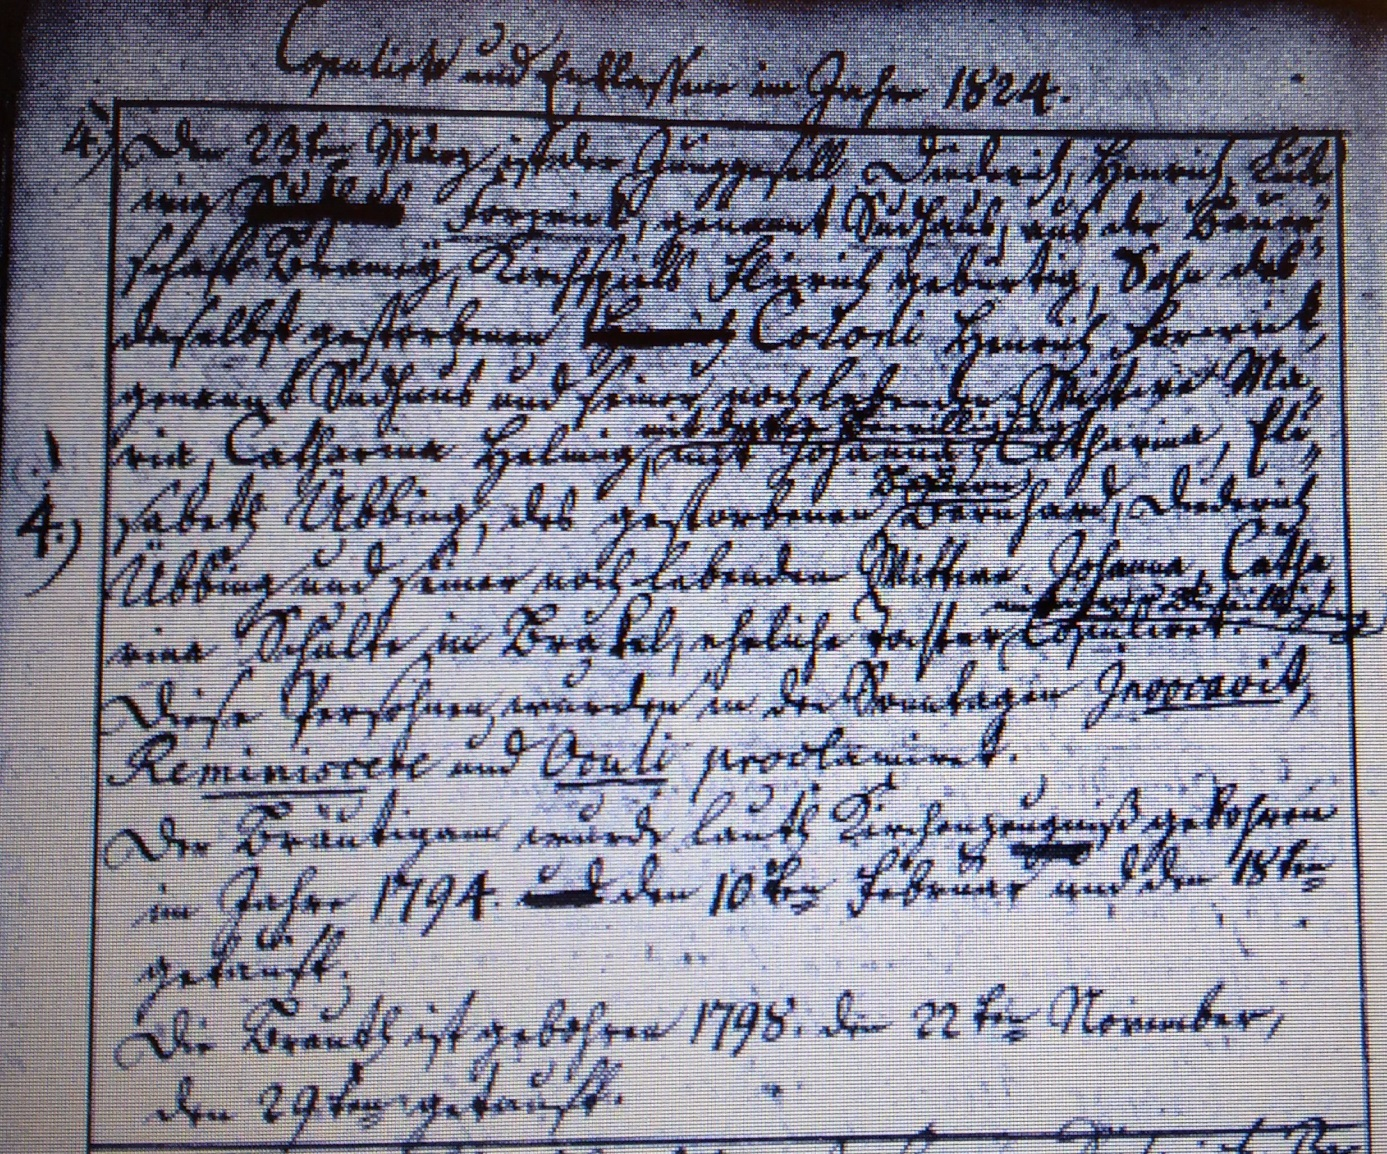 Copulirte und Entlassene im Jahre 1824.
4.) Den 23ten März ist der Junggesell Diederich, Henrich, Lud-
wig Forwick, genannt Sudhaus, aus der Bauer-
schaft Bramey, Kirchspiels Flierich gebürtig, Sohn des
daselbst gestorbenen Coloni Henrich Forwick,
genannt Sudhaus und seiner noch lebenden Wittwe Ma-
ria, Catharina Helmig, mit Johanna, Catharina, Eli-
4.) sabeth Übbing, des gestorbenen Bernhard, Diederich
Übbing und seiner noch lebenden Wittwe Johanna, Catha-
rina Schulte in Brakel, eheliche Tochter Copuliret.
Diese Persohnen wurden in den Sonntagen Invocavit,
Reminiscere und Oculi proclamiret.
Der Bräutigam wurde lauth Kirchenzeugniß gebohren
im Jahre 1794. den 10ten Februar und den 18ten
getauft.
Die Brauth ist gebohren 1798. den 22ten November,
den 29ten getauft.